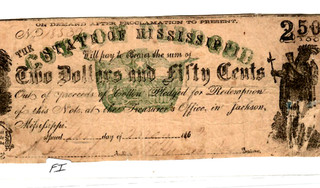 ON DEMAND AFTER PROCLAMATION TO PRESENT,
THE STATE OF MISSISSIPPI
2.50
Will pay to Bearer the sum of
Two Dollars and Fifty Cents
Out of proceeds of Cotton Pledged for Redemption
of this Note, at the Treasurer's Office, in Jackson,
Mississippi.
Issued day of 186
FI